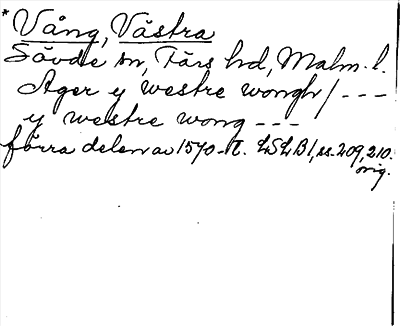 * Vång, Västra
Sövde sn, Färs hd, Malm. l.
Ager y westre wongh / ---
y westre wong ---
förra delen av 1570-t. LSLB1, ss. 209, 210.
orig.